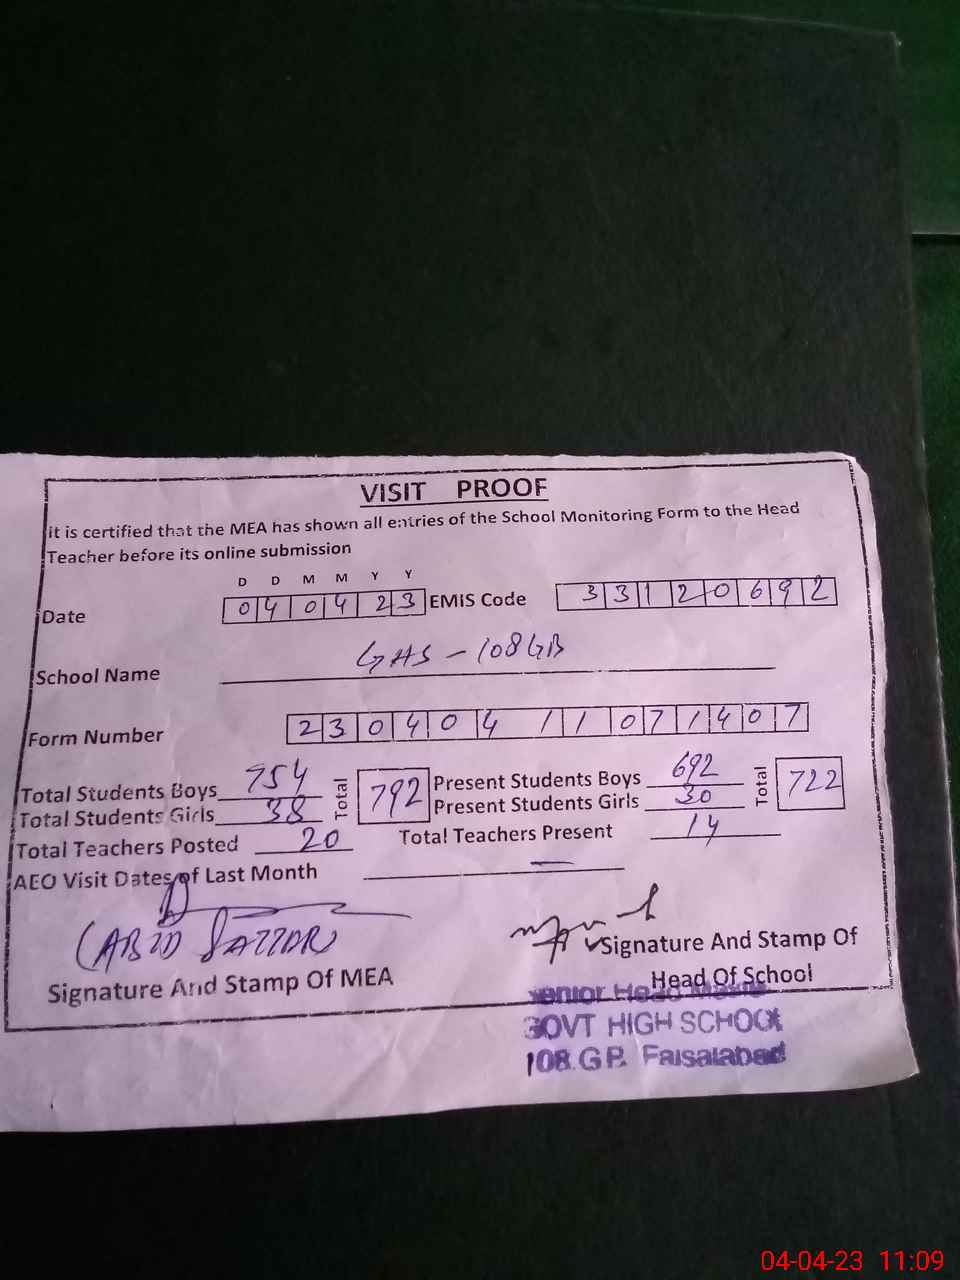 VISIT PROOF
it is certified that the MEA has shown all entries of the School Monitoring Form to the Head
Teacher before its online submission
D D M M Y Y
Date 0 4 0 4 2 3 EMIS Code 3 3 1 2 0 6 9 2
School Name GHS - 108 GB
Form Number 2 3 0 4 0 4 1 1 0 7 1 4 0 7
Total Students Boys 754 Total 792 Present Students Boys 692 Total 722
Total Students Girls 38 Present Students Girls 30
Total Teachers Posted 20 Total Teachers Present 14
AEO Visit Dates of Last Month —
(ABID
Signature And Stamp Of MEA
Signature And Stamp Of
Head Of School
Senior Head
GOVT HIGH SCHOOL
108 GB Faisalabad
04-04-23 11:09